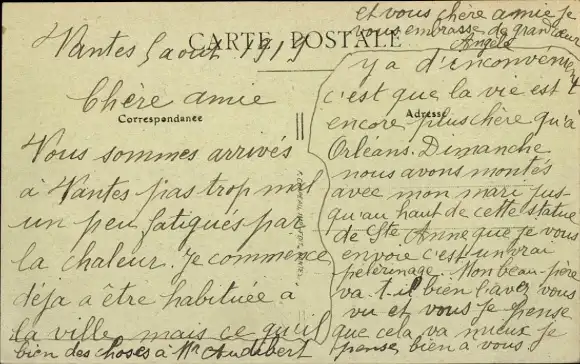 CARTE POSTALE
Correspondance
Adresse
Nantes 5 aout 1919
Chère amie
Nous sommes arrivés
à Nantes pas trop mal
un peu fatigués par
la chaleur. Je commence
déja a être habituée a
la ville mais ce qu'il
y a d'inconvénient
c'est que la vie est
encore plus chère qu'a
Orléans. Dimanche
nous avons montés
avec mon mari jus
qu'au haut de cette statue
de Ste Anne que je vous
envoie c'est un vrai
pèlerinage. Mon beau-père
va-t-il bien l'avez vous
vu et vous je pense
que cela va mieux je
pense bien a vous.
bien des choses à Mr Audibert
et vous chère amie je
vous embrasse de grand cœur
Angèle